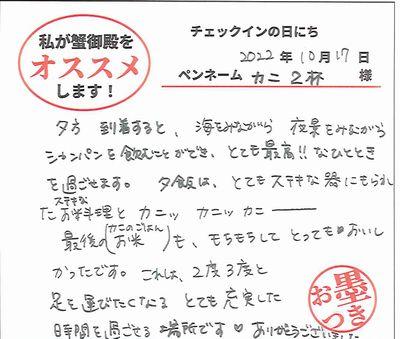 私が蟹御殿を
オススメ
します！
チェックインの日にち
2022年10月17日
ペンネーム カニ2杯 様
夕方 到着すると、海をみながら 夜景をみながら
シャンパンを飲むことができ、とても最高!!なひととき
を過ごせます。 夕飯は、とてもステキな器にもられ
たステキなお料理と カニッ カニッ カニー
最後の(カニのごはん お米)も、もちもちして とっても おいし
かったです。 これは、2度3度と
足を運びたくなる とても充実した
時間を過ごせる場所です♡ ありがとうございました
お墨つき